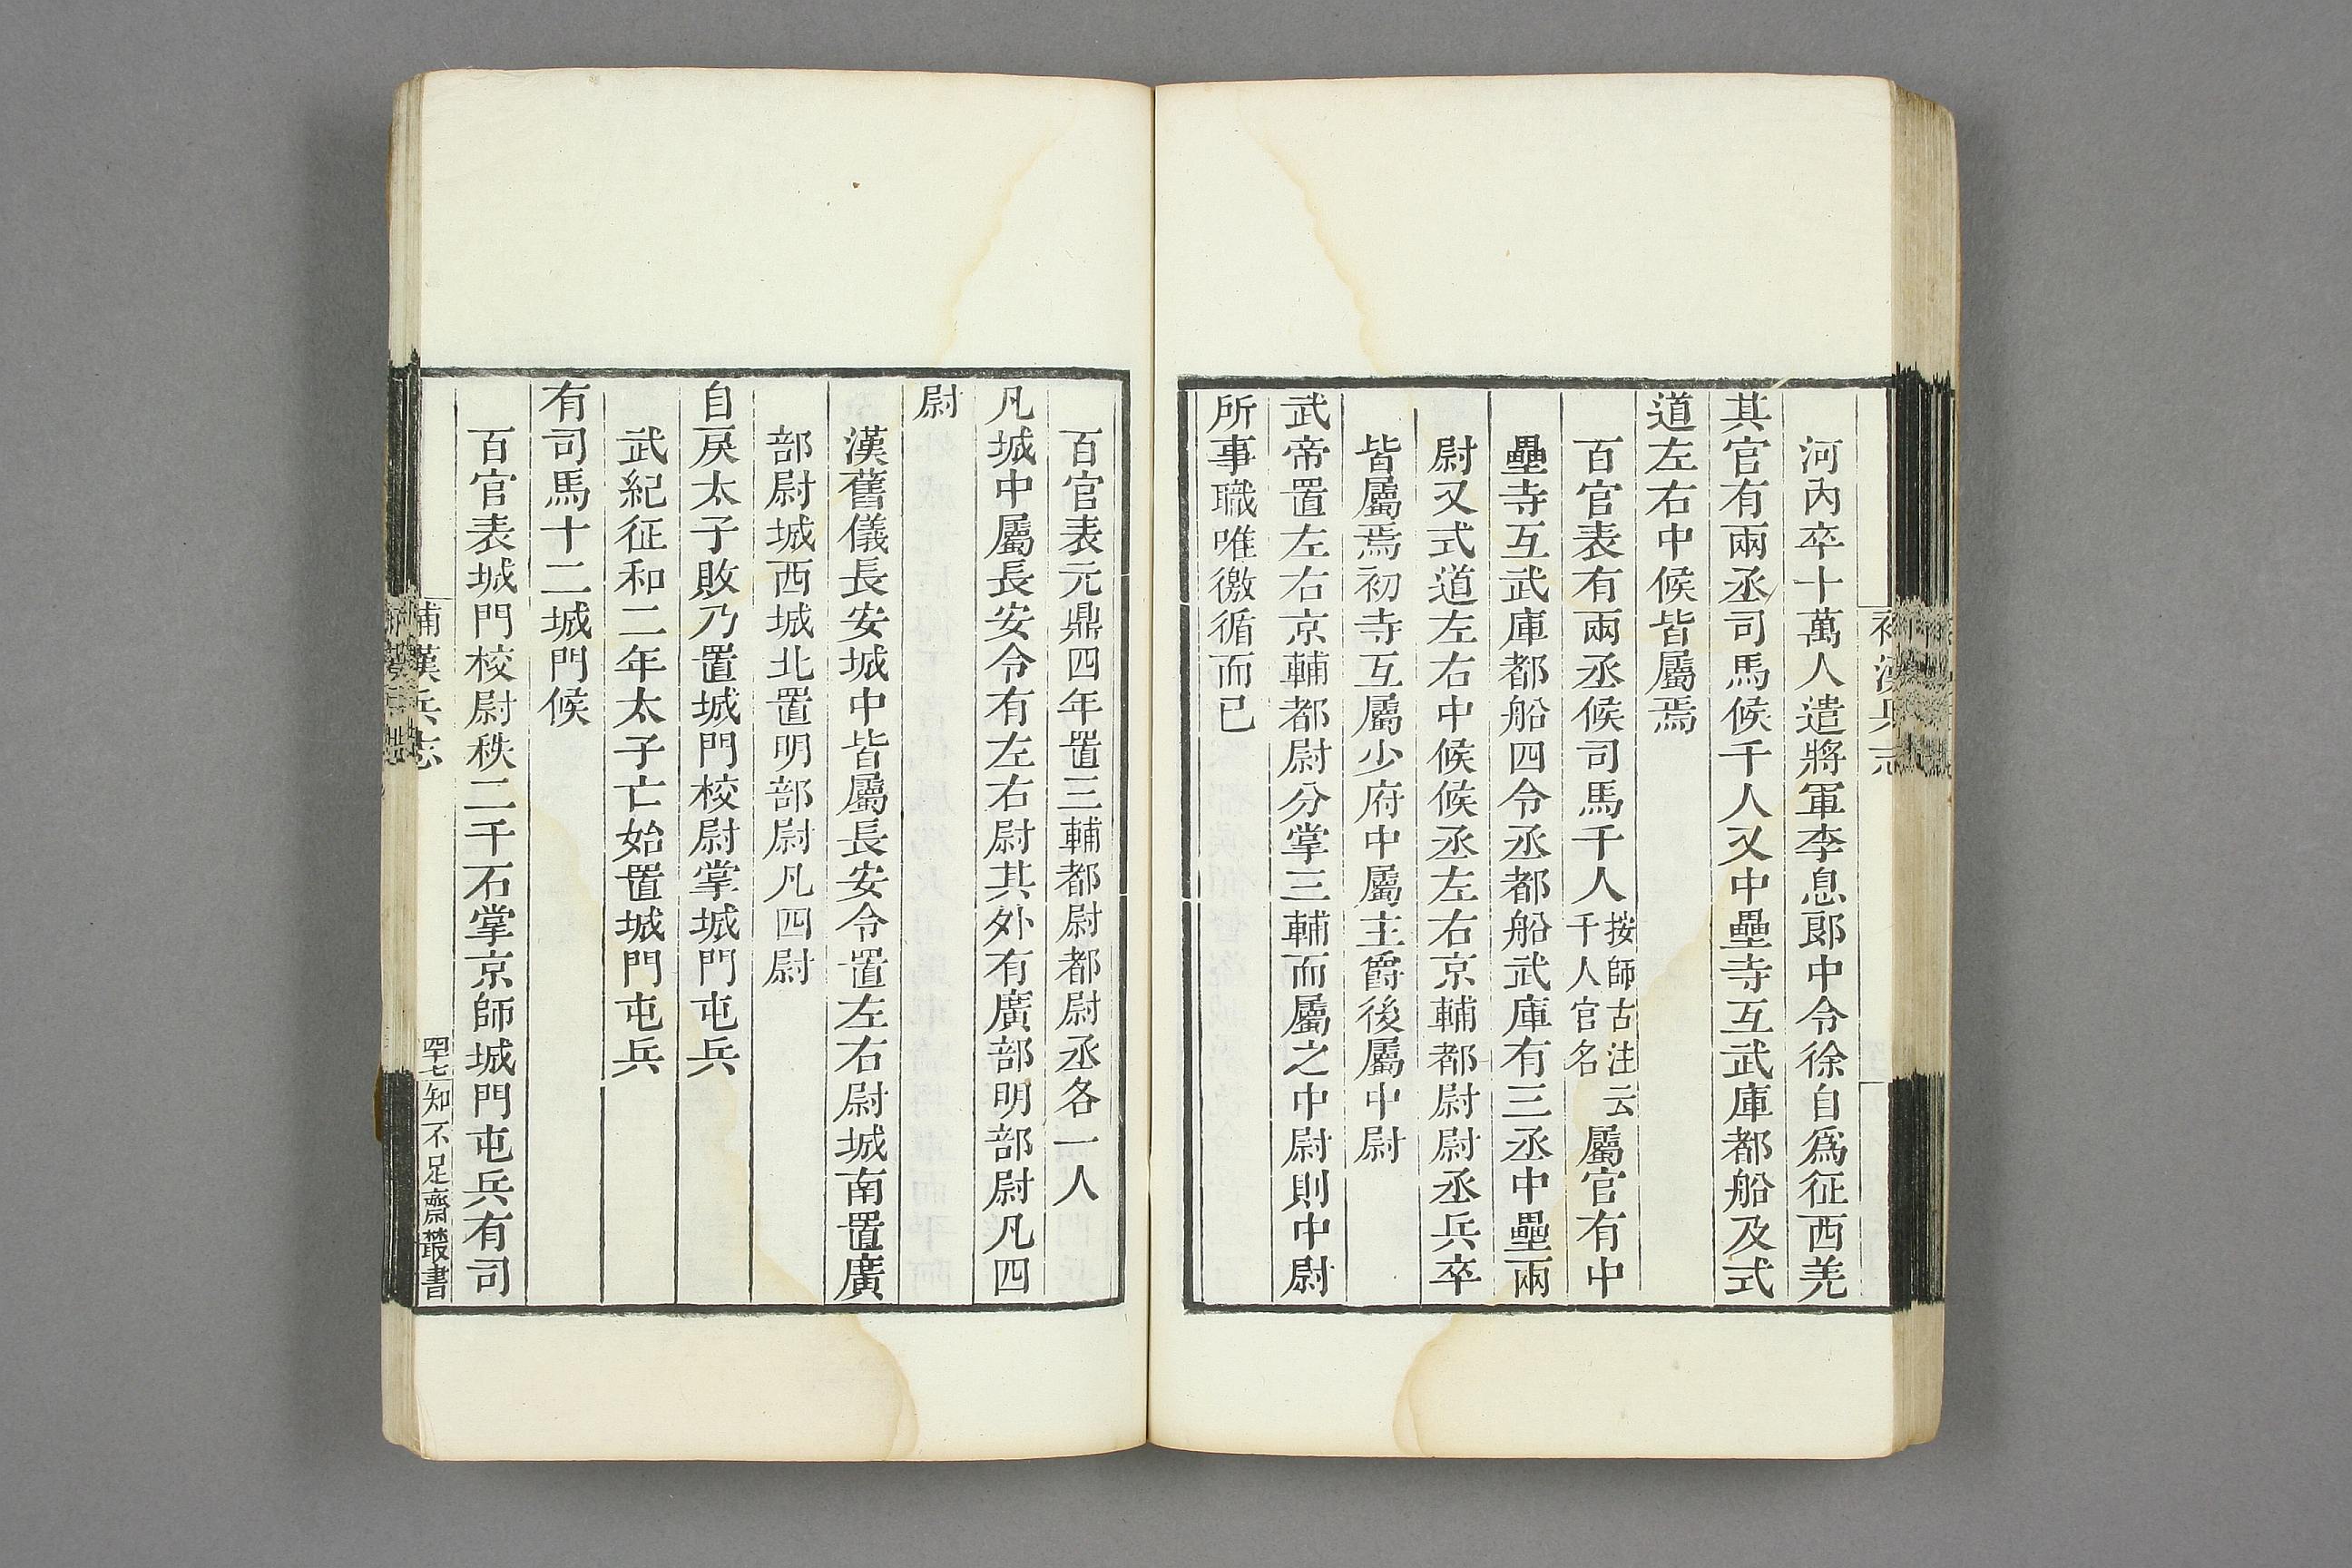 補漢兵志
河內卒十萬人遣將軍李息郞中令徐自爲征西羌
其官有兩丞司馬候千人又中壘寺互武庫都船及式
道左右中候皆屬焉
百官表有兩丞候司馬千人按師古注云千人官名屬官有中
壘寺互武庫都船四令丞都船武庫有三丞中壘兩
尉又式道左右中候候丞左右京輔都尉尉丞兵卒
皆屬焉初寺互屬少府中屬主爵後屬中尉
武帝置左右京輔都尉分掌三輔而屬之中尉則中尉
所事職唯徼循而已
百官表元鼎四年置三輔都尉都尉丞各一人
凡城中屬長安令有左右尉其外有廣部明部尉凡四
尉
漢舊儀長安城中皆屬長安令置左右尉城南置廣
部尉城西城北置明部尉凡四尉
自戾太子敗乃置城門校尉掌城門屯兵
武紀征和二年太子亡始置城門屯兵
有司馬十二城門候
百官表城門校尉秩二千石掌京師城門屯兵有司
補漢兵志
四十七
知不足齋叢書